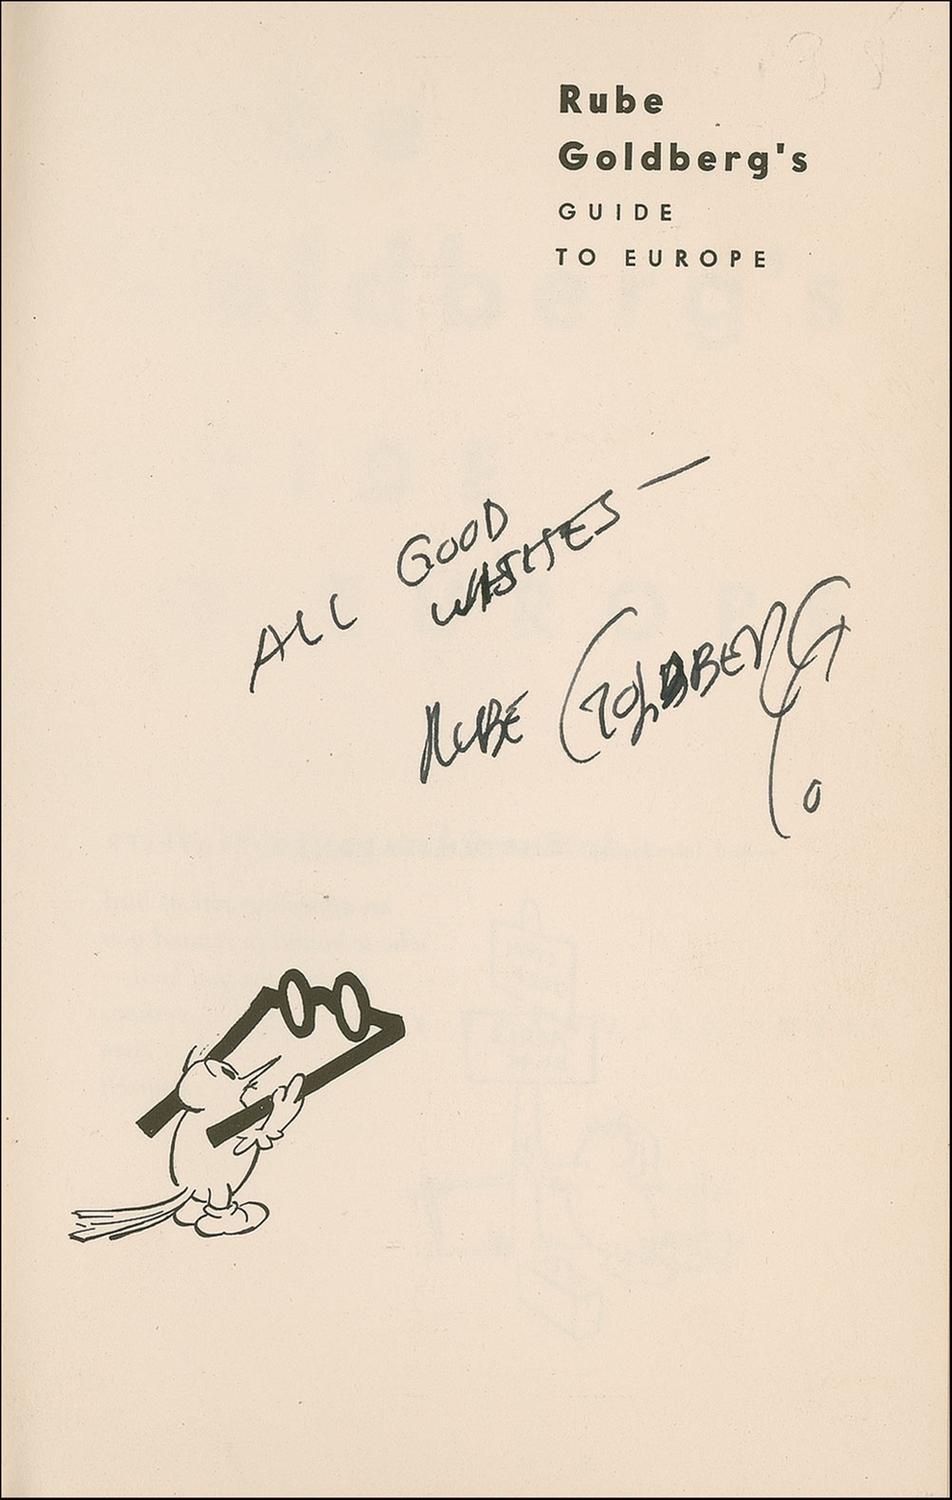 Rube
Goldberg's
GUIDE
TO EUROPE
ALL GOOD
WISHES —
RUBE GOLDBERG